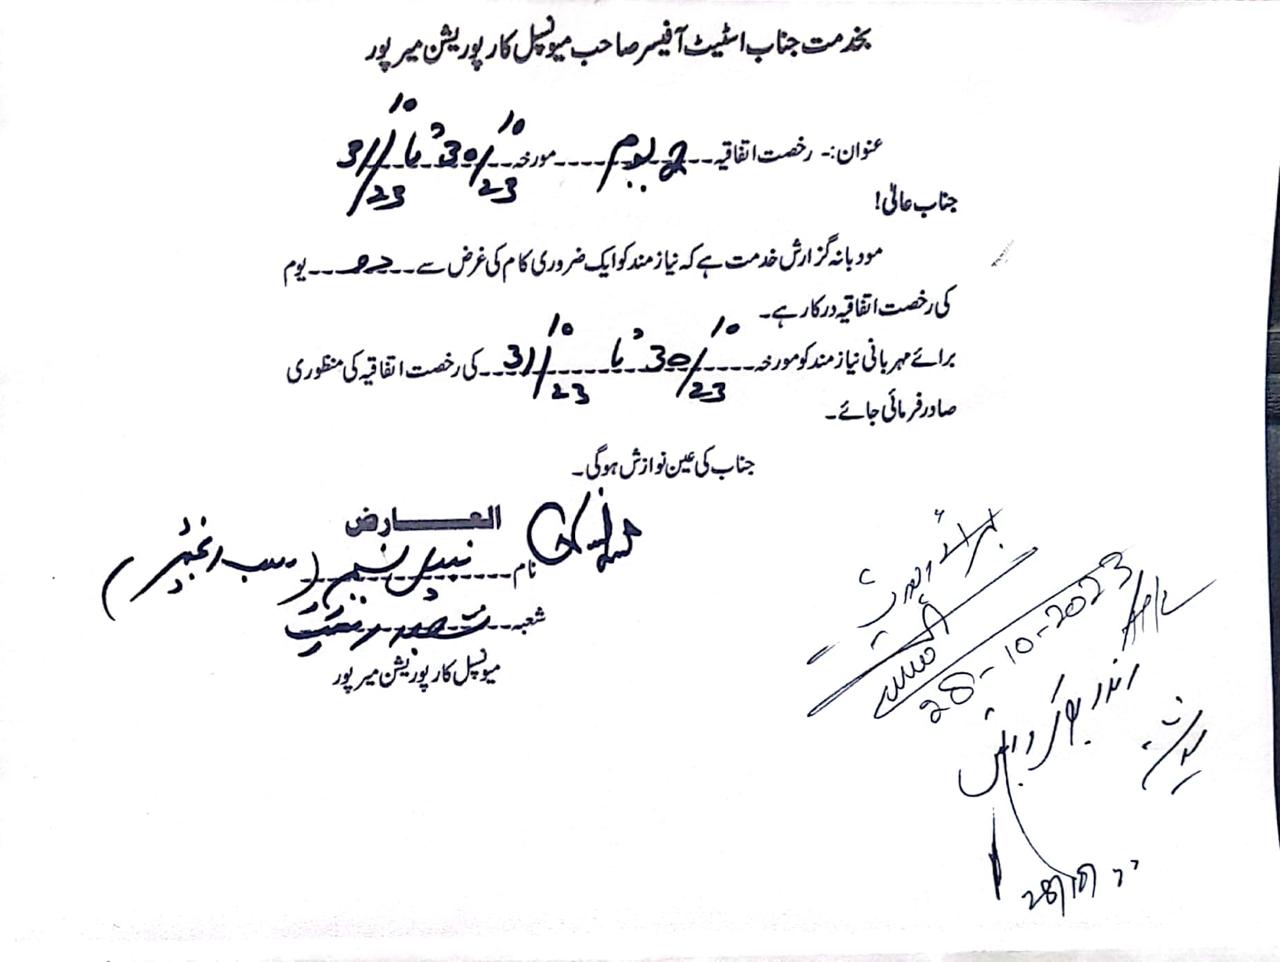 بخدمت جناب اسٹیٹ آفیسر صاحب میونسپل کارپوریشن میرپور
عنوان:- رخصت اتفاقیہ 2 یوم مورخہ 30/10/23 تا 31/10/23
جناب عالیٰ!
مودبانہ گزارش خدمت ہے کہ نیاز مند کو ایک ضروری کام کی غرض سے دو یوم
کی رخصت اتفاقیہ درکار ہے۔
برائے مہربانی نیاز مند کو مورخہ 30/10/23 تا 31/10/23 کی رخصت اتفاقیہ کی منظوری
صادر فرمائی جائے۔
جناب کی عین نوازش ہوگی۔
العارض
نام نبیل نسیم (سب انجینئر)
شعبہ
میونسپل کارپوریشن میرپور
برائے
28-10-2023
A/P/L
28/10/23